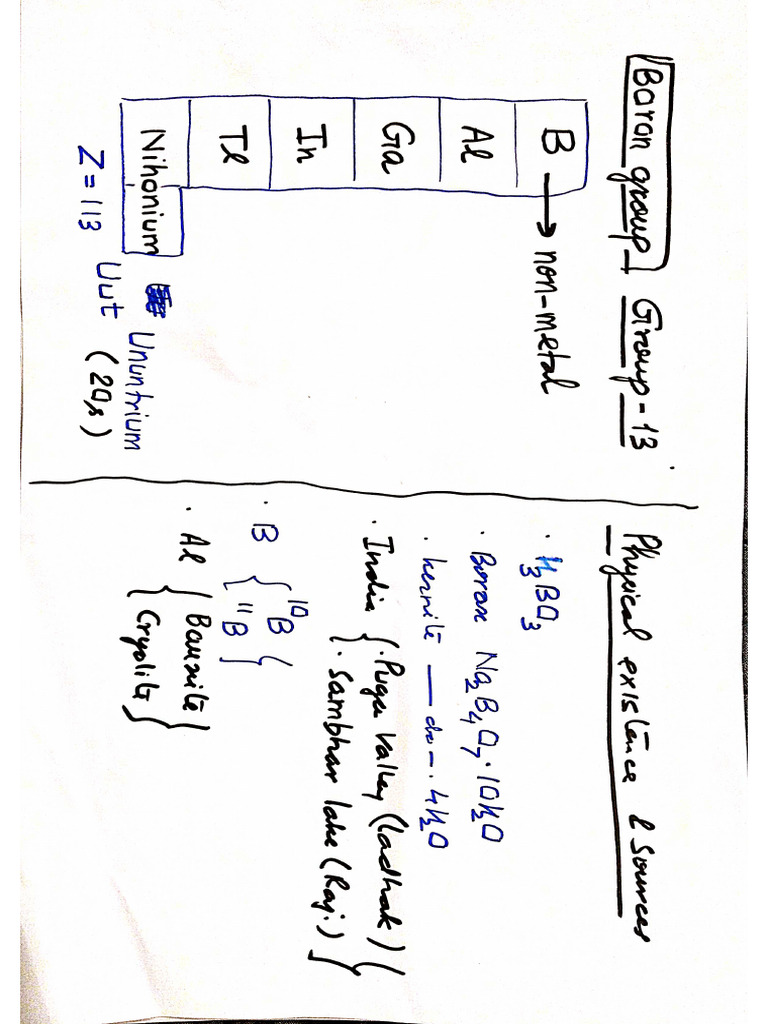 Boron group Group-13
B → non-metal
Al
Ga
In
Tl
Nihonium Ununtrium
Z = 113 Uut (20s)
Physical existence & sources
· H₃BO₃
· Borax Na₂B₄O₇·10H₂O
· kernite — do — · 4H₂O
· India { · Puga Valley (Ladhak)
· Sambhar lake (Raj.) }
· B { ¹⁰B
¹¹B }
· Al { Bauxite
Cryolite }